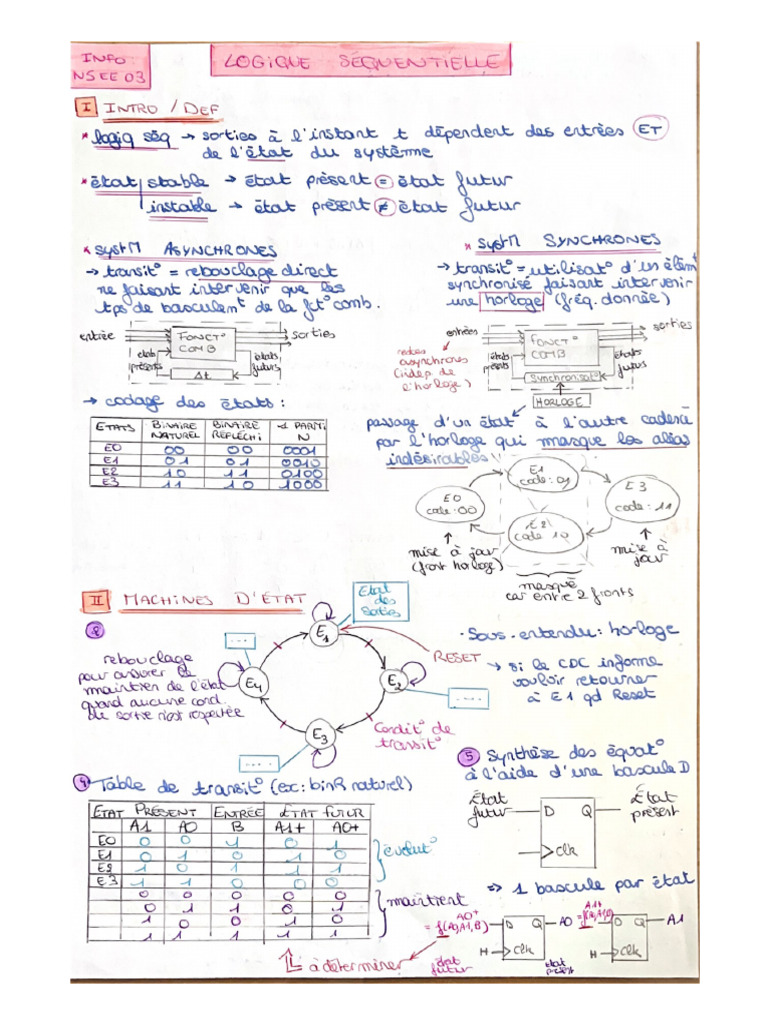 INFO:
NSEE 03
LOGIQUE SÉQUENTIELLE
I INTRO / DEF
* logiq séq → sorties à l'instant t dépendent des entrées ET
de l'état du système
* état stable → état présent = état futur
instable → état présent ≠ état futur
* systM ASYNCHRONES
→ transit° = rebouclage direct
ne faisant intervenir que les
tps de basculemt de la fct° comb.
entrée
FONCT°
COMB
sorties
états
présents
états
futurs
Δt
* systM SYNCHRONES
→ transit° = utilisat° d'un élémt
synchronisé faisant intervenir
une horloge (fréq. donnée)
entrées
FONCT°
COMB
sorties
états
présents
états
futurs
Synchronisat°
HORLOGE
asynchrones
(indép. de
l'horloge)
→ codage des états :
ETATS BINAIRE NATUREL BINAIRE REFLECHI 1 PARTI N
E0 00 00 0001
E1 01 01 0010
E2 10 11 0100
E3 11 10 1000
passage d'un état à l'autre cadencé
par l'horloge qui masque les aléas
indésirables
E0
code:00
E1
code:01
E2
code 10
E3
code:11
mise à jour
(front horloge)
masqué
car entre 2 fronts
mise à
jour
II MACHINES D'ÉTAT
Etat
des
Sorties
...
E1
E2
E3
E4
...
...
RESET
Condit° de
transit°
rebouclage
pour assurer le
maintien de l'état
quand aucune cond.
de sortie n'est respectée
. Sous-entendu : horloge
→ si le CDC informe
vouloir retourner
à E1 qd Reset
4 Table de transit° (ex: binR naturel)
ETAT PRÉSENT ENTRÉE ETAT FUTUR
A1 A0 B A1+ A0+
E0 0 0 1 0 1
E1 0 1 0 1 0
E2 1 0 1 1 1
E3 1 1 0 0 0
0 0 0 0 0
0 1 1 0 1
1 0 0 1 0
1 1 1 1 1
évolut°
maintient
à déterminer
5 Synthèse des équat°
à l'aide d'une bascule D
État
futur
D Q
Clk
État
présent
⇒ 1 bascule par état
A0+
= f(A0,A1,B)
D Q
H Clk
A0
état
futur
état
présent
A1+
D Q
H Clk
A1